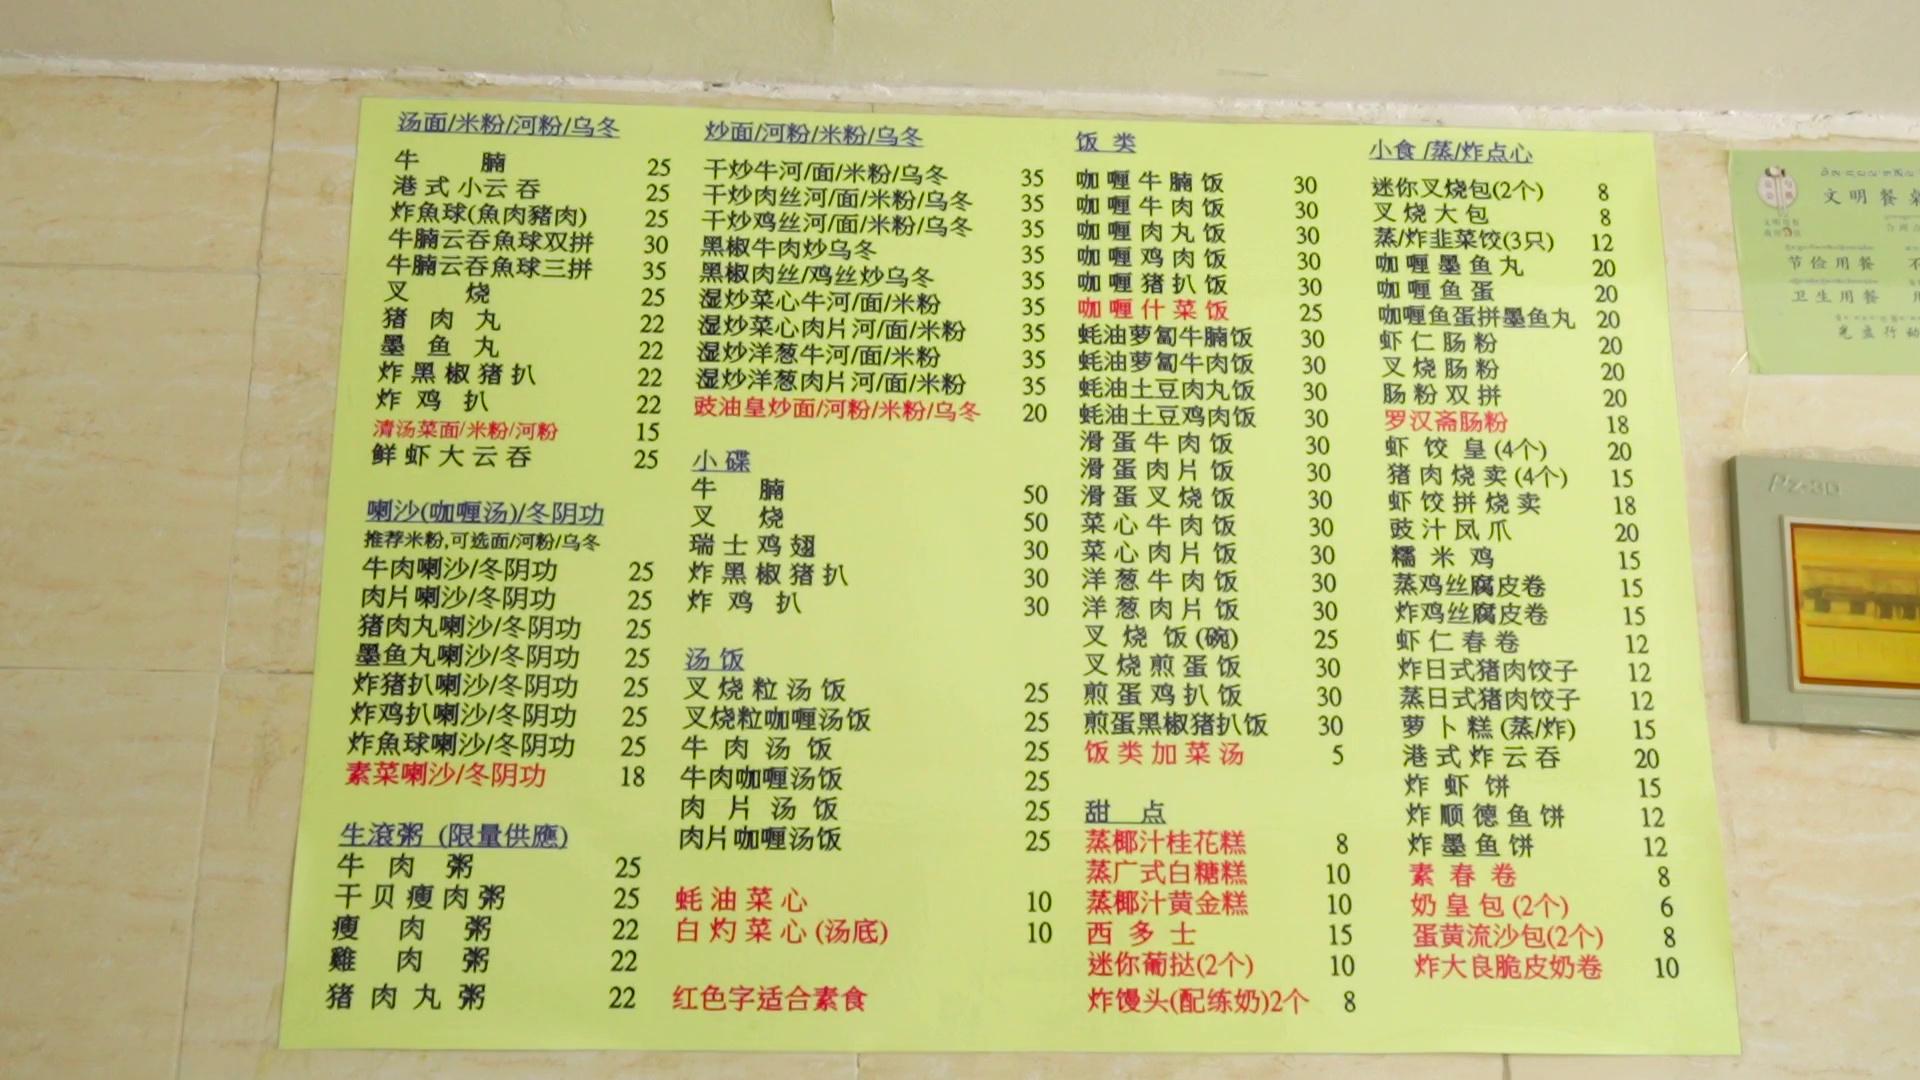 汤面/米粉/河粉/乌冬
牛腩 25
港式小云吞 25
炸魚球(魚肉豬肉) 25
牛腩云吞魚球双拼 30
牛腩云吞魚球三拼 35
叉烧 25
猪肉丸 22
墨鱼丸 22
炸黑椒猪扒 22
炸鸡扒 22
清汤菜面/米粉/河粉 15
鲜虾大云吞 25
喇沙(咖喱汤)/冬阴功
推荐米粉,可选面/河粉/乌冬
牛肉喇沙/冬阴功 25
肉片喇沙/冬阴功 25
猪肉丸喇沙/冬阴功 25
墨鱼丸喇沙/冬阴功 25
炸猪扒喇沙/冬阴功 25
炸鸡扒喇沙/冬阴功 25
炸魚球喇沙/冬阴功 25
素菜喇沙/冬阴功 18
生滾粥 (限量供應)
牛肉粥 25
干贝瘦肉粥 25
瘦肉粥 22
雞肉粥 22
猪肉丸粥 22
炒面/河粉/米粉/乌冬
干炒牛河/面/米粉/乌冬 35
干炒肉丝河/面/米粉/乌冬 35
干炒鸡丝河/面/米粉/乌冬 35
黑椒牛肉炒乌冬 35
黑椒肉丝/鸡丝炒乌冬 35
湿炒菜心牛河/面/米粉 35
湿炒菜心肉片河/面/米粉 35
湿炒洋葱牛河/面/米粉 35
湿炒洋葱肉片河/面/米粉 35
豉油皇炒面/河粉/米粉/乌冬 20
小碟
牛腩 50
叉烧 50
瑞士鸡翅 30
炸黑椒猪扒 30
炸鸡扒 30
汤饭
叉烧粒汤饭 25
叉烧粒咖喱汤饭 25
牛肉汤饭 25
牛肉咖喱汤饭 25
肉片汤饭 25
肉片咖喱汤饭 25
蚝油菜心 10
白灼菜心(汤底) 10
红色字适合素食
饭类
咖喱牛腩饭 30
咖喱牛肉饭 30
咖喱肉丸饭 30
咖喱鸡肉饭 30
咖喱猪扒饭 30
咖喱什菜饭 25
蚝油萝匐牛腩饭 30
蚝油萝匐牛肉饭 30
蚝油土豆肉丸饭 30
蚝油土豆鸡肉饭 30
滑蛋牛肉饭 30
滑蛋肉片饭 30
滑蛋叉烧饭 30
菜心牛肉饭 30
菜心肉片饭 30
洋葱牛肉饭 30
洋葱肉片饭 30
叉烧饭(碗) 25
叉烧煎蛋饭 30
煎蛋鸡扒饭 30
煎蛋黑椒猪扒饭 30
饭类加菜汤 5
甜点
蒸椰汁桂花糕 8
蒸广式白糖糕 10
蒸椰汁黄金糕 10
西多士 15
迷你葡挞(2个) 10
炸馒头(配练奶)2个 8
小食/蒸/炸点心
迷你叉烧包(2个) 8
叉烧大包 8
蒸/炸韭菜饺(3只) 12
咖喱墨鱼丸 20
咖喱鱼蛋 20
咖喱鱼蛋拼墨鱼丸 20
虾仁肠粉 20
叉烧肠粉 20
肠粉双拼 20
罗汉斋肠粉 18
虾饺皇(4个) 20
猪肉烧卖(4个) 15
虾饺拼烧卖 18
豉汁凤爪 20
糯米鸡 15
蒸鸡丝腐皮卷 15
炸鸡丝腐皮卷 15
虾仁春卷 12
炸日式猪肉饺子 12
蒸日式猪肉饺子 12
萝卜糕(蒸/炸) 15
港式炸云吞 20
炸虾饼 15
炸顺德鱼饼 12
炸墨鱼饼 12
素春卷 8
奶皇包(2个) 6
蛋黄流沙包(2个) 8
炸大良脆皮奶卷 10
文明餐
节俭用餐
卫生用餐
PZ-30